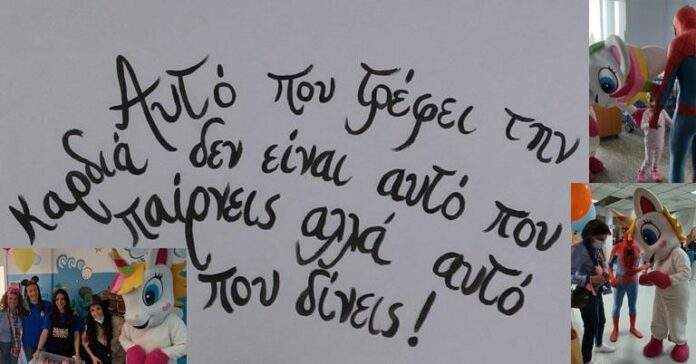 Αυτό που τρέφει την
καρδιά δεν είναι αυτό που
παίρνεις αλλά αυτό
που δίνεις!